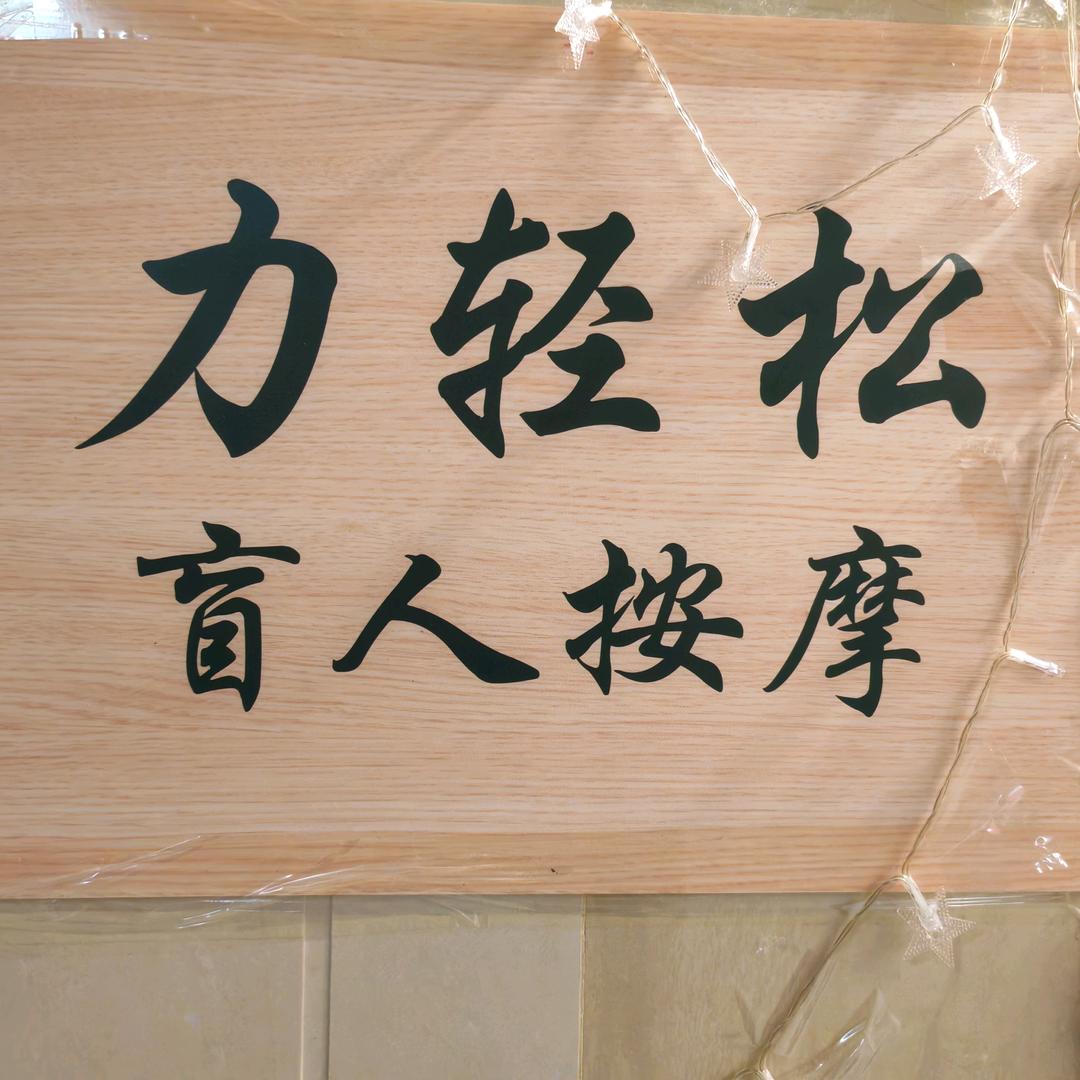 力轻松
盲人按摩